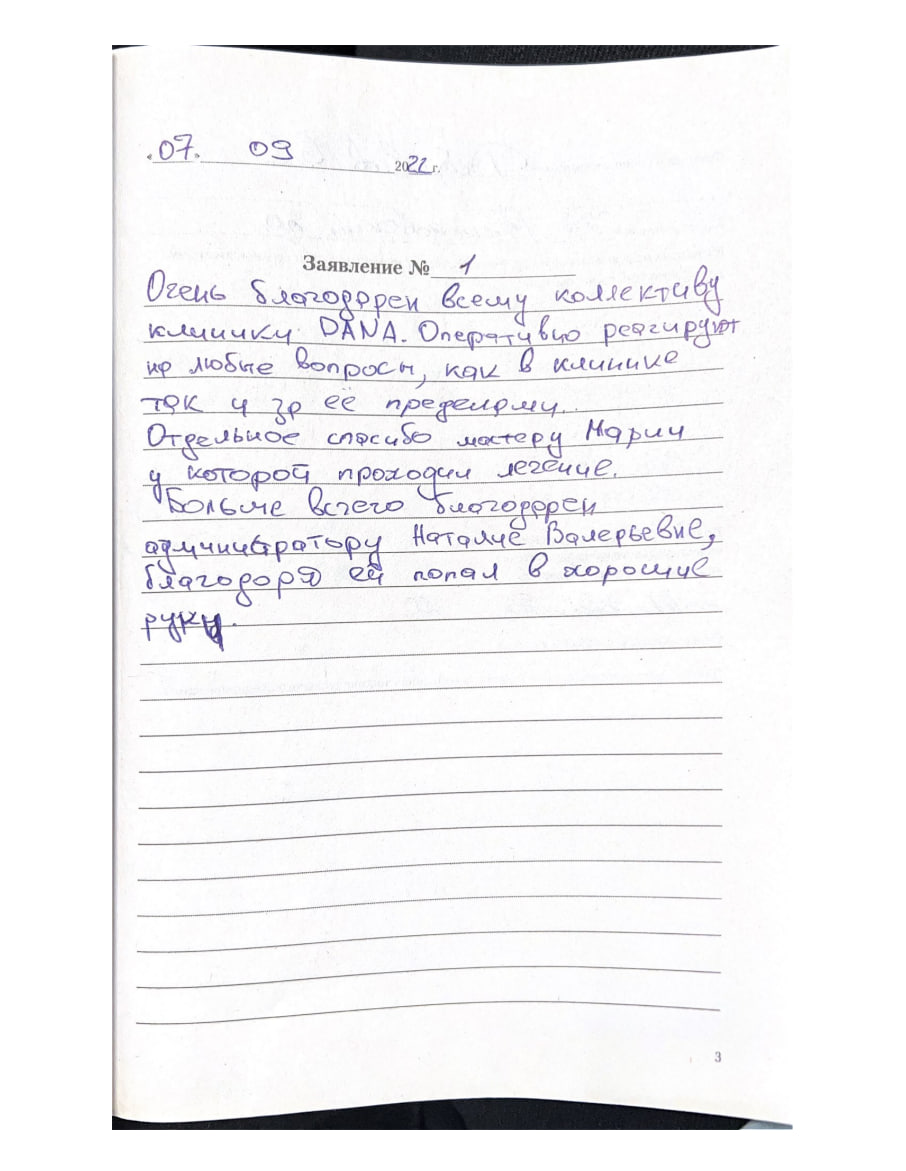 «07» 09 2022 г.
Заявление № 1
Очень благодарен всему коллективу
клиники DANA. Оперативно реагируют
на любые вопросы, как в клинике
так и за её пределами.
Отдельное спасибо мастеру Марии
у которой проходил лечение.
Больше всего благодарен
администратору Наталие Валерьевне,
благодоря ей попал в хорошие
руки.
3